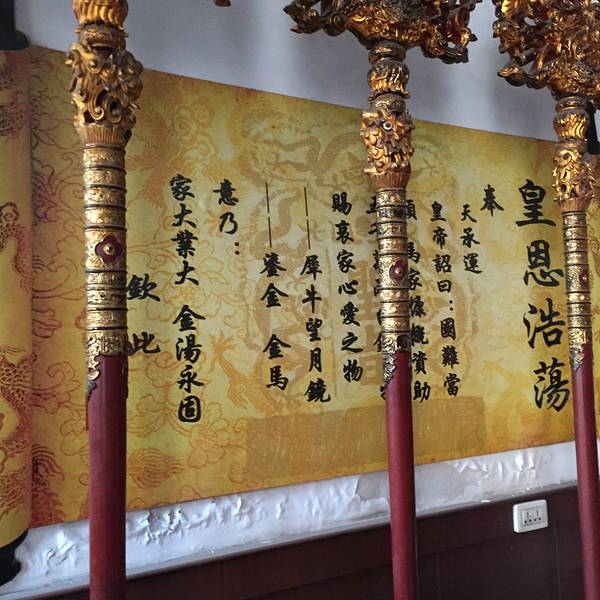 皇恩浩蕩
奉
天承運
皇帝詔曰：國難當
頭馬家慷慨資助
賜哀家心愛之物
——犀牛望月鏡
——鎏金 金馬
意乃：
家大業大 金湯永固
欽此